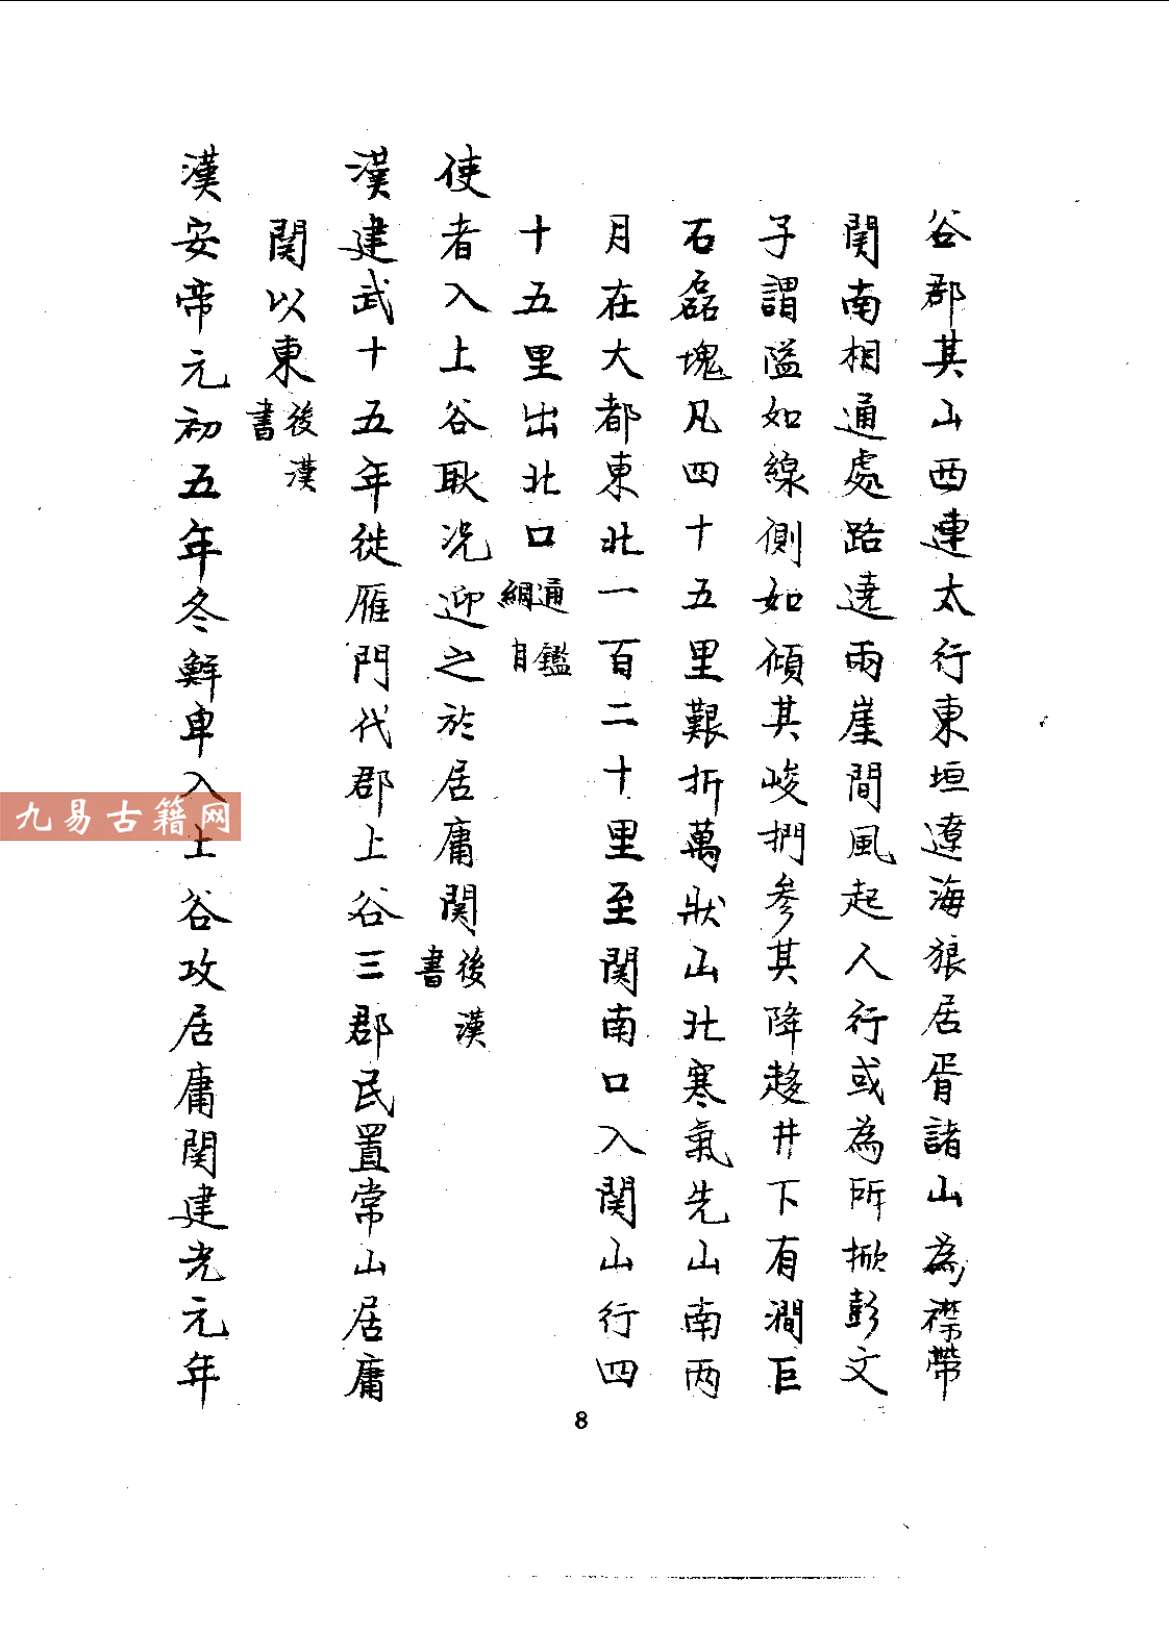 谷郡其山西連太行東垣遼海狼居胥諸山為襟帶
関南相通處路遶兩崖間風起人行或為所掀彭文
子謂隘如線側如傾其峻捫參其降趍井下有澗巨
石磊塊凡四十五里艱折萬狀山北寒氣先山南两
月在大都東北一百二十里至関南口入関山行四
十五里出北口通鑑綱目
使者入上谷耿况迎之於居庸関後漢書
漢建武十五年徙雁門代郡上谷三郡民置常山居庸
関以東後漢書
漢安帝元初五年冬鮮卑入上谷攻居庸関建光元年
8
九易古籍网